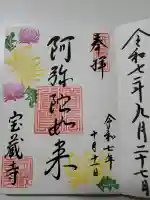 令和七年九月二十七日
奉拝
令和七年
十月十二日
阿弥陀如来
宝蔵寺